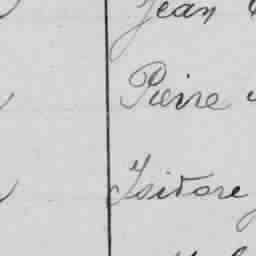 Jean
Pierre
Isidore